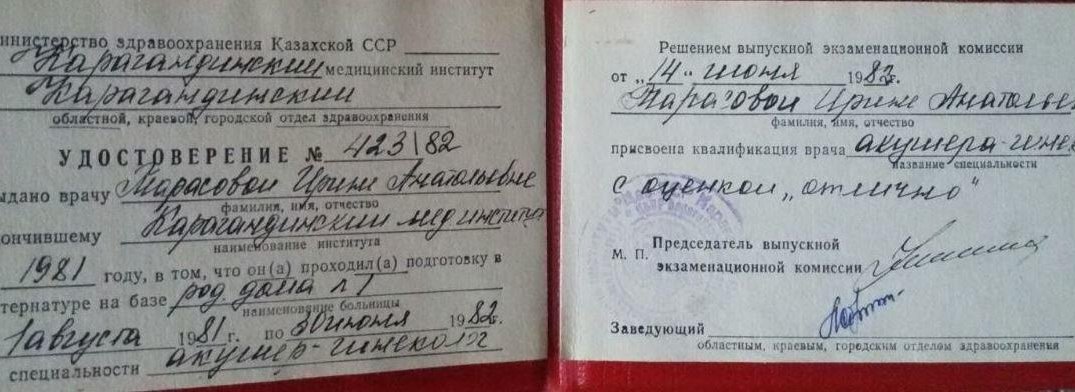 министерство здравоохранения Казахской ССР
Карагандинский медицинский институт
Карагандинский
областной, краевой, городской отдел здравоохранения
УДОСТОВЕРЕНИЕ № 423/82
ыдано врачу Тарасовой Ирине Анатольевне
фамилия, имя, отчество
ончившему Карагандинский мединститут
наименование института
1981 году, в том, что он(а) проходил(а) подготовку в
тернатуре на базе род. дома №1
наименование больницы
1 августа 1981 г. по 30 июня 1982 г.
специальности акушер-гинеколог
Решением выпускной экзаменационной комиссии
от „14" июня 1982 г.
Тарасовой Ирине Анатолье
фамилия, имя, отчество
присвоена квалификация врача акушера-гинек
название специальности
с оценкой „отлично"
М. П. Председатель выпускной
экзаменационной комиссии
Заведующий
областным, краевым, городским отделом здравоохранения